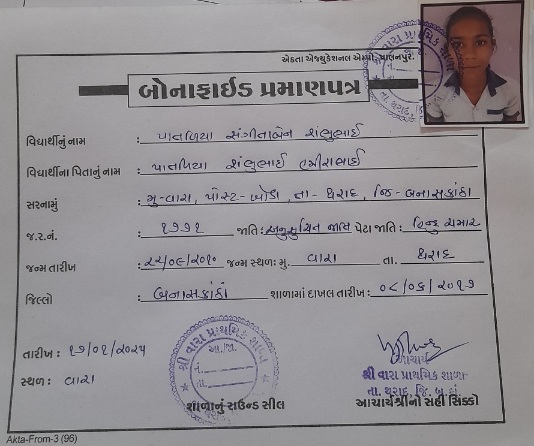 એકતા એજ્યુકેશનલ એમ્પો. પાલનપુર.
બોનાફાઈડ પ્રમાણપત્ર
વિદ્યાર્થીનું નામ : પાતળિયા સંગીતાબેન શંભુભાઈ
વિદ્યાર્થીના પિતાનું નામ : પાતળિયા શંભુભાઈ
સરનામું : મુ-વારા, પોસ્ટ-ખોડા, તા-થરાદ, જિ-બનાસકાંઠા
જ.ર.નં. : ૧૭૭૧ જાતિ : અનુસુચિત જાતિ પેટા જાતિ : હિન્દુ ચમાર
જન્મ તારીખ જન્મ સ્થળ: મુ. વારા તા. થરાદ
જિલ્લો : બનાસકાંઠા શાળામાં દાખલ તારીખ :
તારીખ : ૧૭/૦૧/૨૦૨૫
સ્થળ : વારા
શ્રી વારા પ્રાથમિક શાળા
તા.
શાળાનું રાઉન્ડ સીલ
આચાર્ય
શ્રી વારા પ્રાથમિક શાળા
તા. થરાદ, જિ. બ.કાં.
આચાર્યશ્રીનો સહી સિક્કો
Akta-From-3 (96)